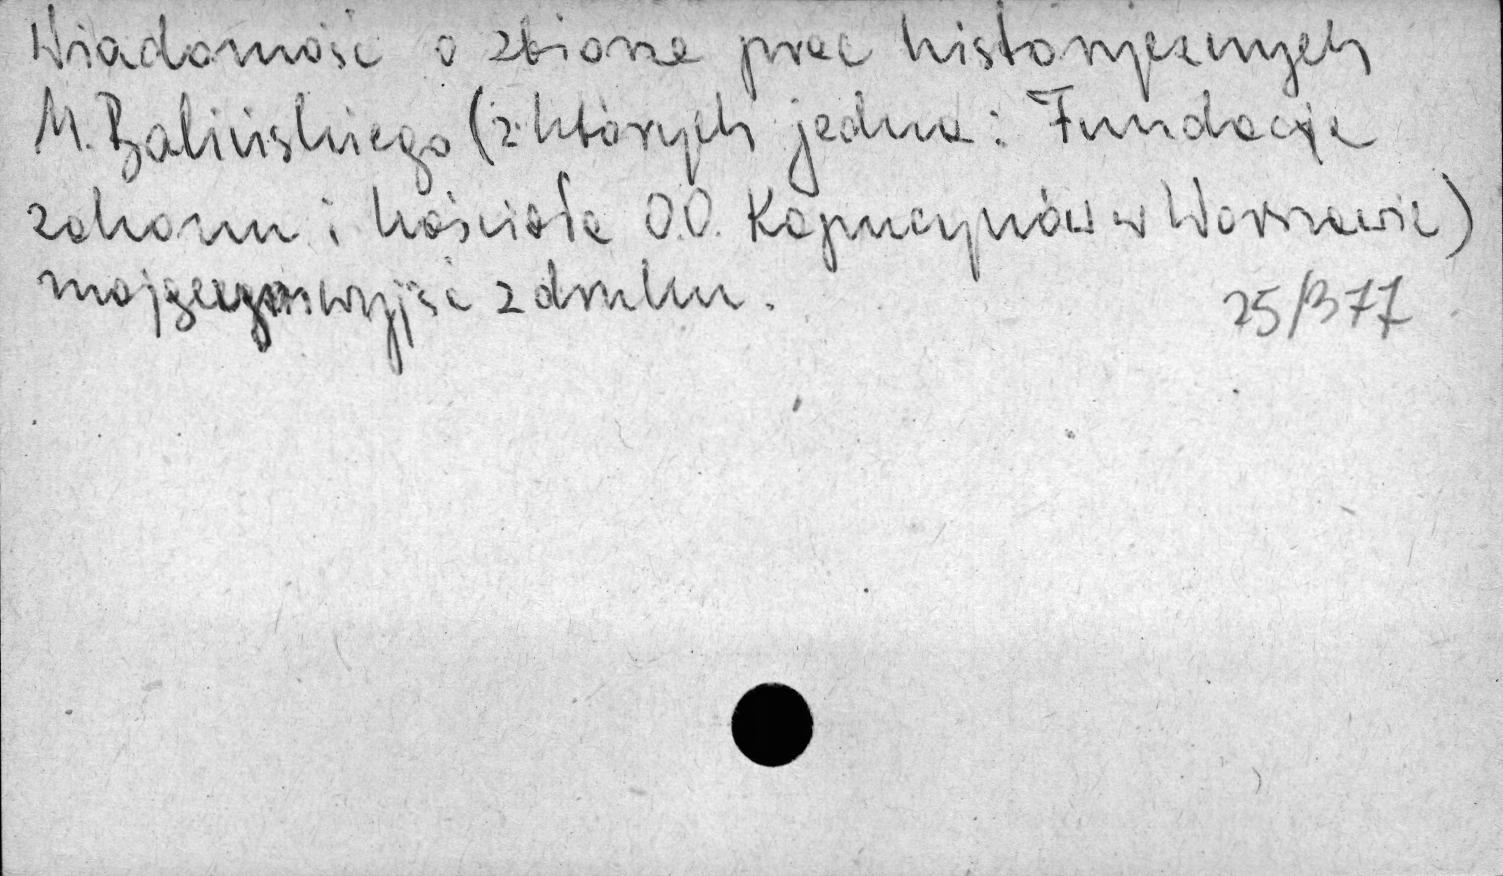 Wiadomość o zbiorze prac historycznych
M. Balińskiego (z których jedna: Fundacja
zakonu i kościoła O.O. Kapucynów w Warszawie)
wyjść z druku. 25/B77